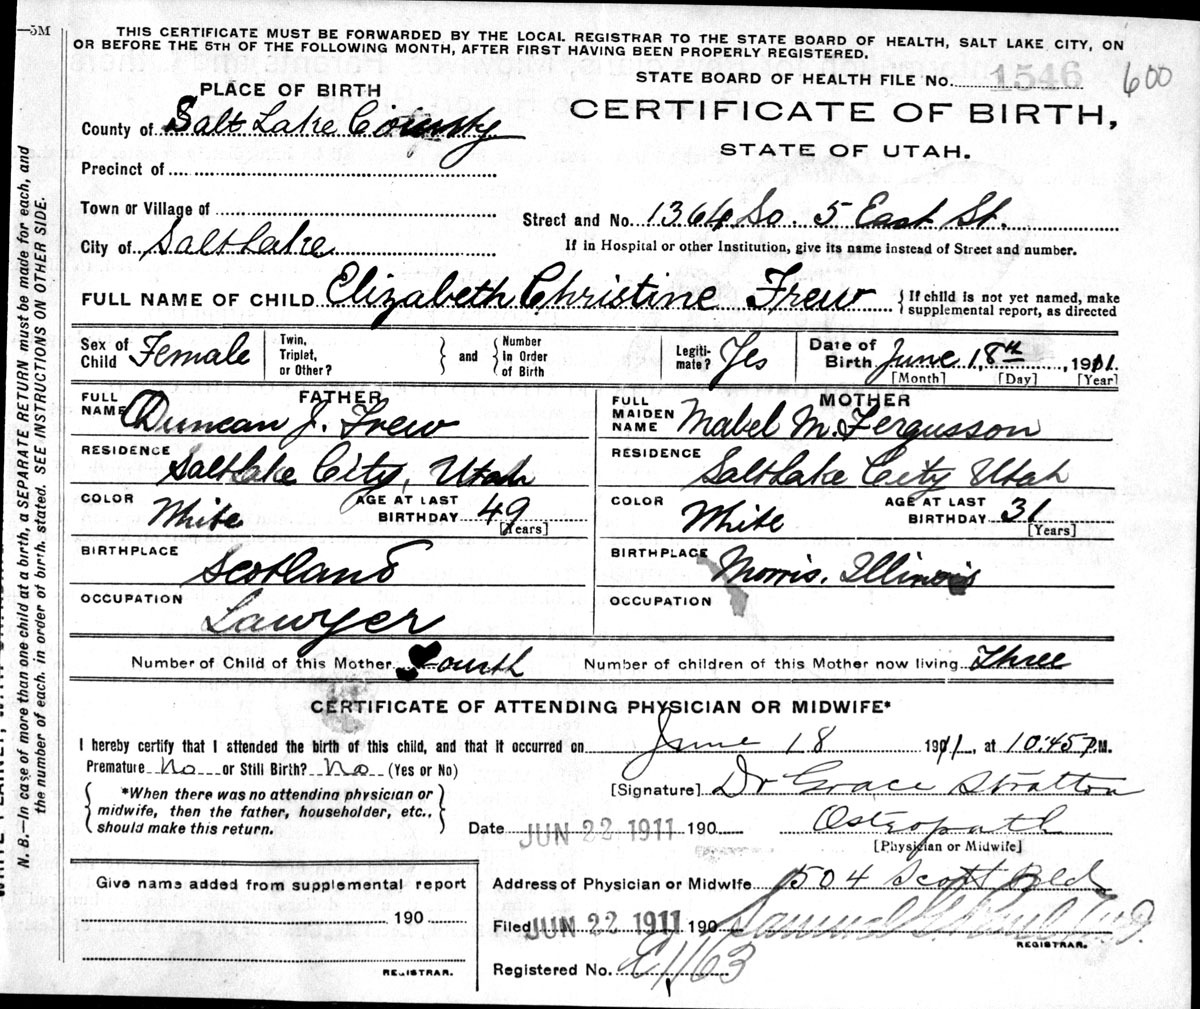 —5M
THIS CERTIFICATE MUST BE FORWARDED BY THE LOCAL REGISTRAR TO THE STATE BOARD OF HEALTH, SALT LAKE CITY, ON
OR BEFORE THE 5TH OF THE FOLLOWING MONTH, AFTER FIRST HAVING BEEN PROPERLY REGISTERED.
STATE BOARD OF HEALTH FILE No. 1546
600
PLACE OF BIRTH
CERTIFICATE OF BIRTH,
STATE OF UTAH.
County of Salt Lake County
Precinct of
Town or Village of
Street and No. 1364 So. 5 East St.
City of Salt Lake
If in Hospital or other Institution, give its name instead of Street and number.
FULL NAME OF CHILD Elizabeth Christine Frew { If child is not yet named, make supplemental report, as directed
Sex of Child Female
Twin, Triplet, or Other? } and { Number In Order of Birth
Legiti- mate? Yes
Date of Birth June 18th, 1911
[Month] [Day] [Year]
FATHER
FULL NAME Duncan J. Frew
RESIDENCE Salt Lake City, Utah
COLOR White AGE AT LAST BIRTHDAY 49 [Years]
BIRTHPLACE Scotland
OCCUPATION Lawyer
MOTHER
FULL MAIDEN NAME Mabel M. Fergusson
RESIDENCE Salt Lake City Utah
COLOR White AGE AT LAST BIRTHDAY 31 [Years]
BIRTHPLACE Morris, Illinois
OCCUPATION
Number of Child of this Mother Fourth Number of children of this Mother now living Three
CERTIFICATE OF ATTENDING PHYSICIAN OR MIDWIFE*
I hereby certify that I attended the birth of this child, and that it occurred on June 18 1911, at 10:45 P.M.
Premature No or Still Birth? No (Yes or No)
{ *When there was no attending physician or midwife, then the father, householder, etc., should make this return. }
[Signature] Dr Grace Stratton
Date JUN 22 1911 190 Osteopath
[Physician or Midwife]
Give name added from supplemental report
190
REGISTRAR.
Address of Physician or Midwife 504 Scott Bld
Filed JUN 22 1911 190 Samuel G. Paul M.D.
REGISTRAR.
Registered No. 1163
N. B.—In case of more than one child at a birth, a SEPARATE RETURN must be made for each, and
the number of each, in order of birth, stated. SEE INSTRUCTIONS ON OTHER SIDE.